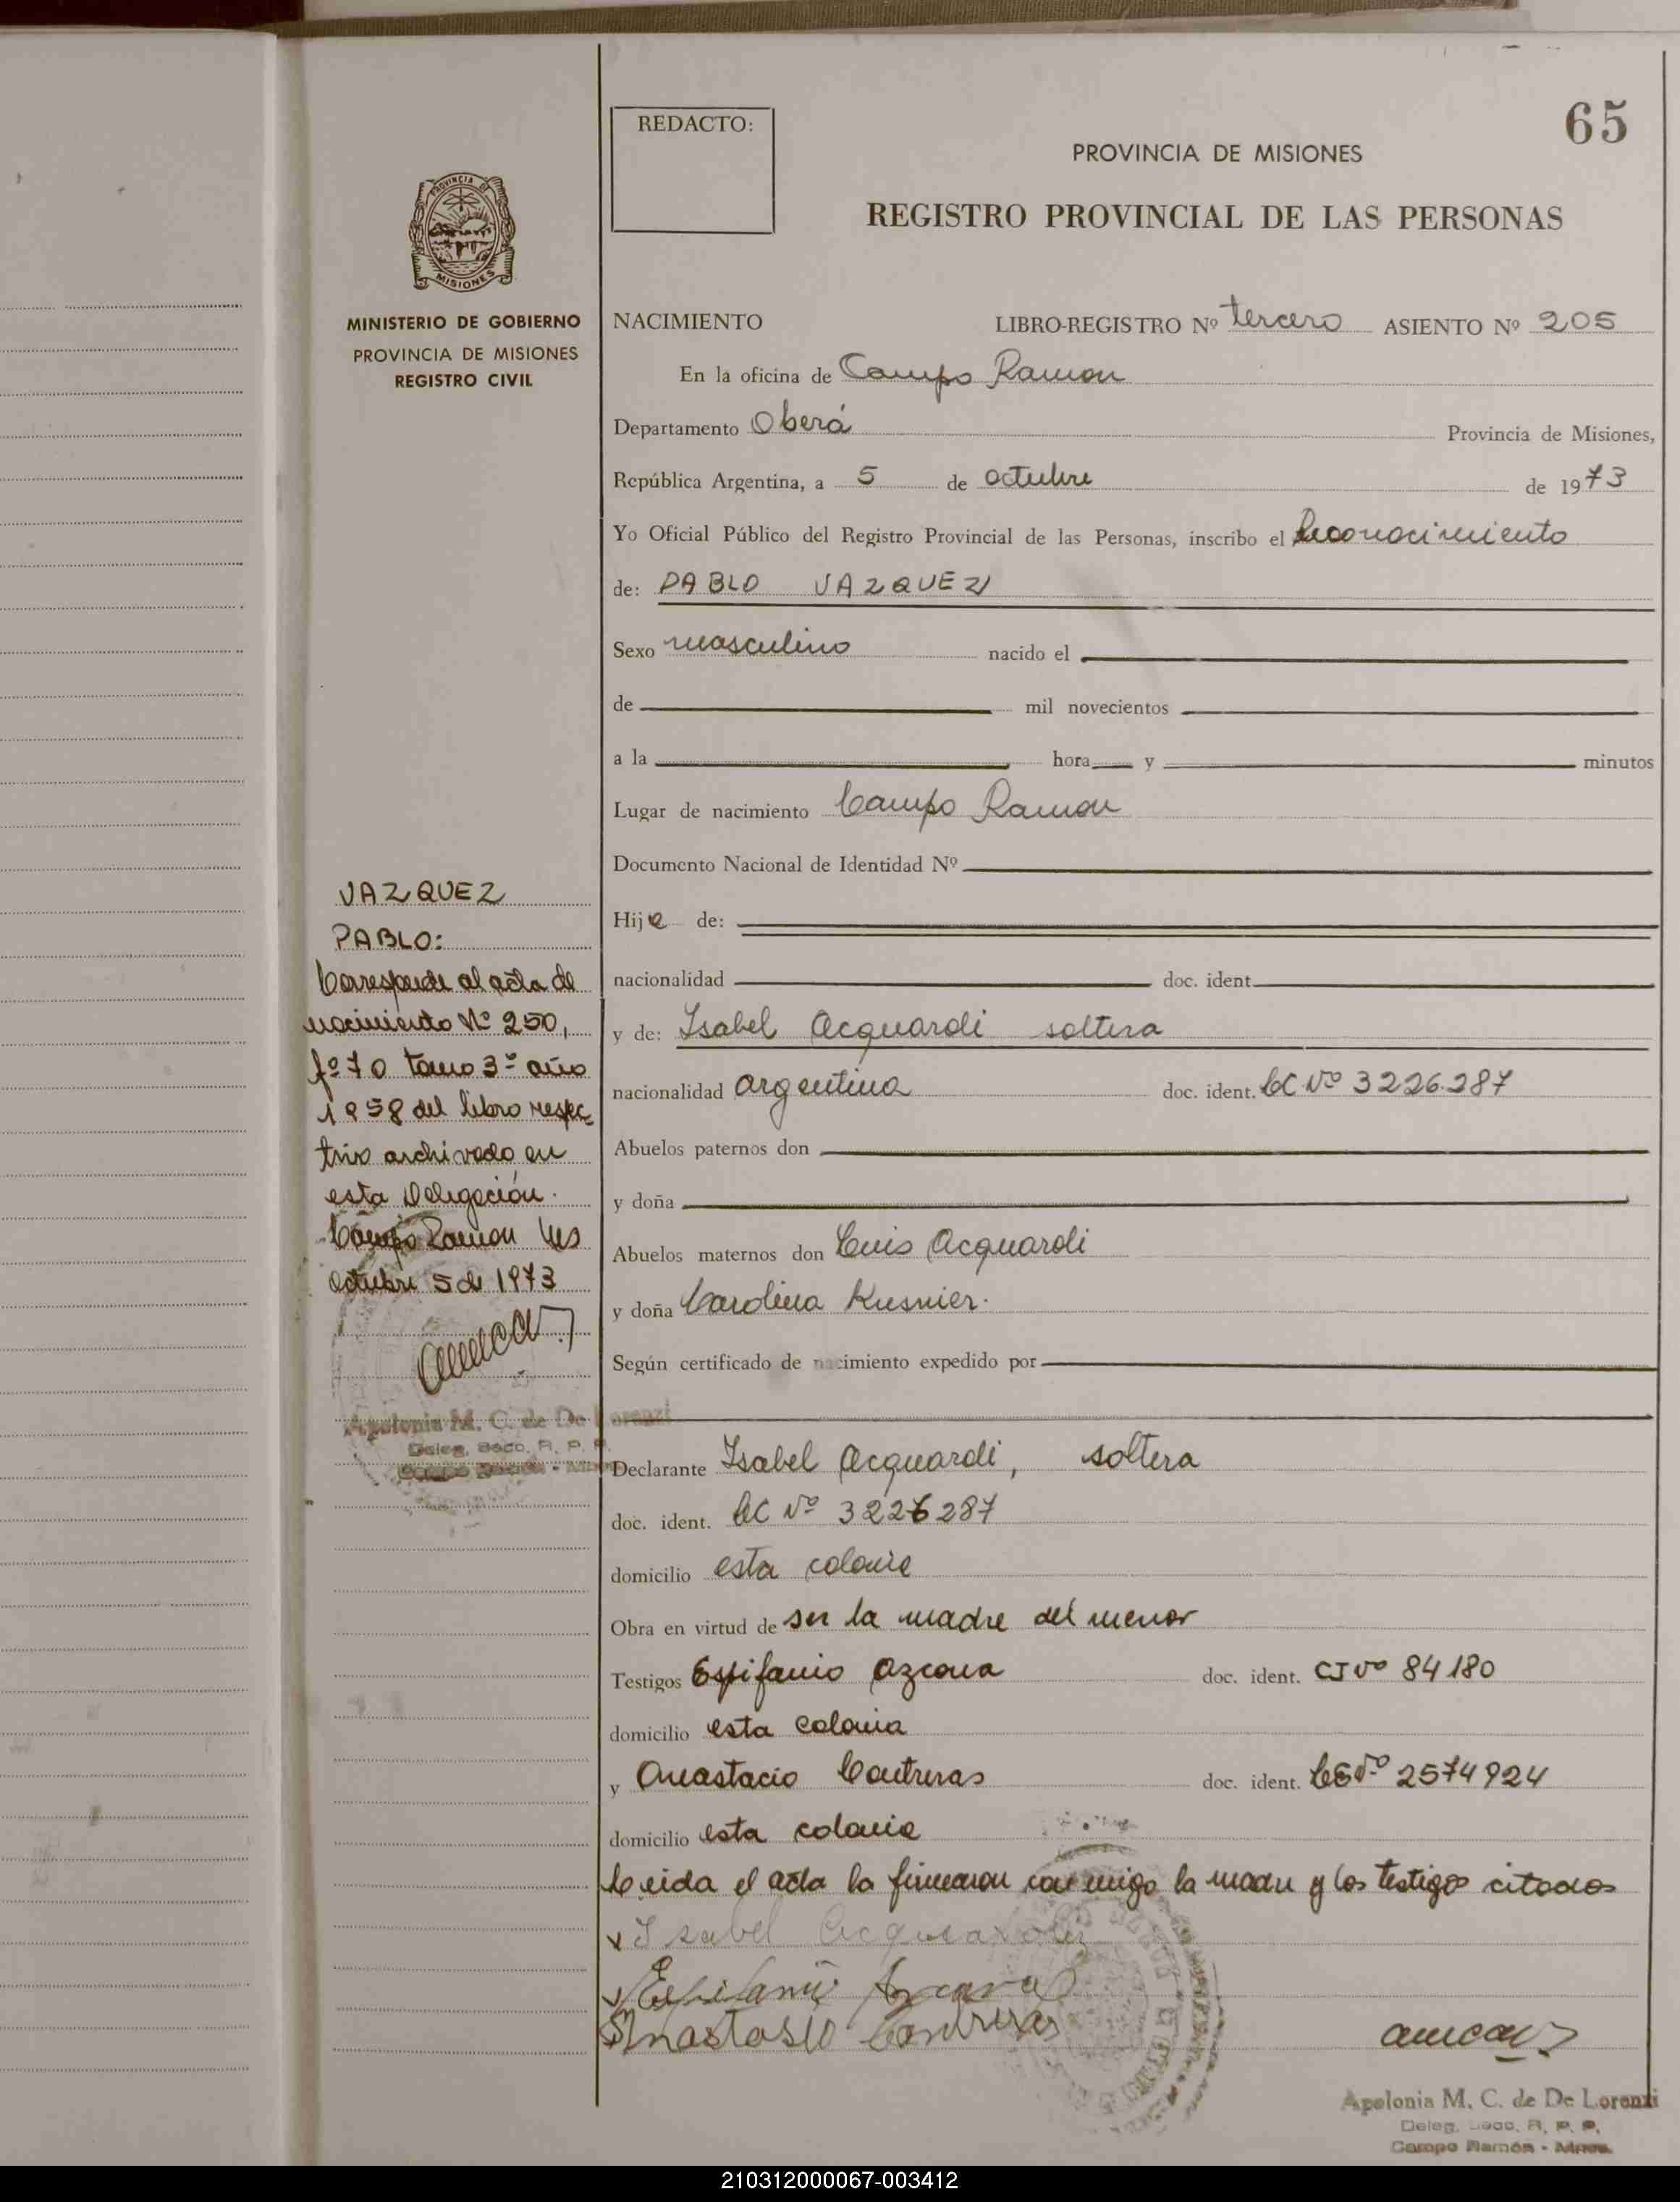 65
REDACTO:
PROVINCIA DE MISIONES
REGISTRO PROVINCIAL DE LAS PERSONAS
PROVINCIA DE
MISIONES
MINISTERIO DE GOBIERNO
PROVINCIA DE MISIONES
REGISTRO CIVIL
NACIMIENTO LIBRO-REGISTRO Nº tercero ASIENTO Nº 205
En la oficina de Campo Ramon
Departamento Oberá Provincia de Misiones,
República Argentina, a 5 de octubre de 1973
Yo Oficial Público del Registro Provincial de las Personas, inscribo el Reconocimiento
de: PABLO VAZQUEZ
Sexo masculino nacido el
de mil novecientos
a la hora y minutos
Lugar de nacimiento Campo Ramon
Documento Nacional de Identidad Nº
Hijo de:
nacionalidad doc. ident.
y de: Isabel Acquardi soltera
nacionalidad argentina doc. ident. LC Nº 3226.287
Abuelos paternos don
y doña
Abuelos maternos don Luis Acquardi
y doña Carolina Kusnier.
Según certificado de nacimiento expedido por
Declarante Isabel Acquardi, soltera
doc. ident. LC Nº 3226287
domicilio esta colonia
Obra en virtud de ser la madre del menor
Testigos Espifanio Azcona doc. ident. CI Nº 84180
domicilio esta colonia
y Anastacio Contreras doc. ident. Nº 2574924
domicilio esta colonia
Leida el acta la firmaron conmigo la madre y los testigos citados
Isabel Acquardi
Anastasio Contreras
Apolonia M. C. de De Lorenzi
Deleg. Seco. R. P. P.
Campo Ramón - Mnes.
VAZQUEZ
PABLO:
Corresponde al acta de
nacimiento Nº 250,
fº 70 tomo 3º año
1958 del libro respec
tivo archivado en
esta Delegación.
Campo Ramon
octubre 5 de 1973
Apolonia M. C. de De Lorenzi
Deleg. Seco. R. P. P.
Campo Ramón - Mnes.
210312000067-003412